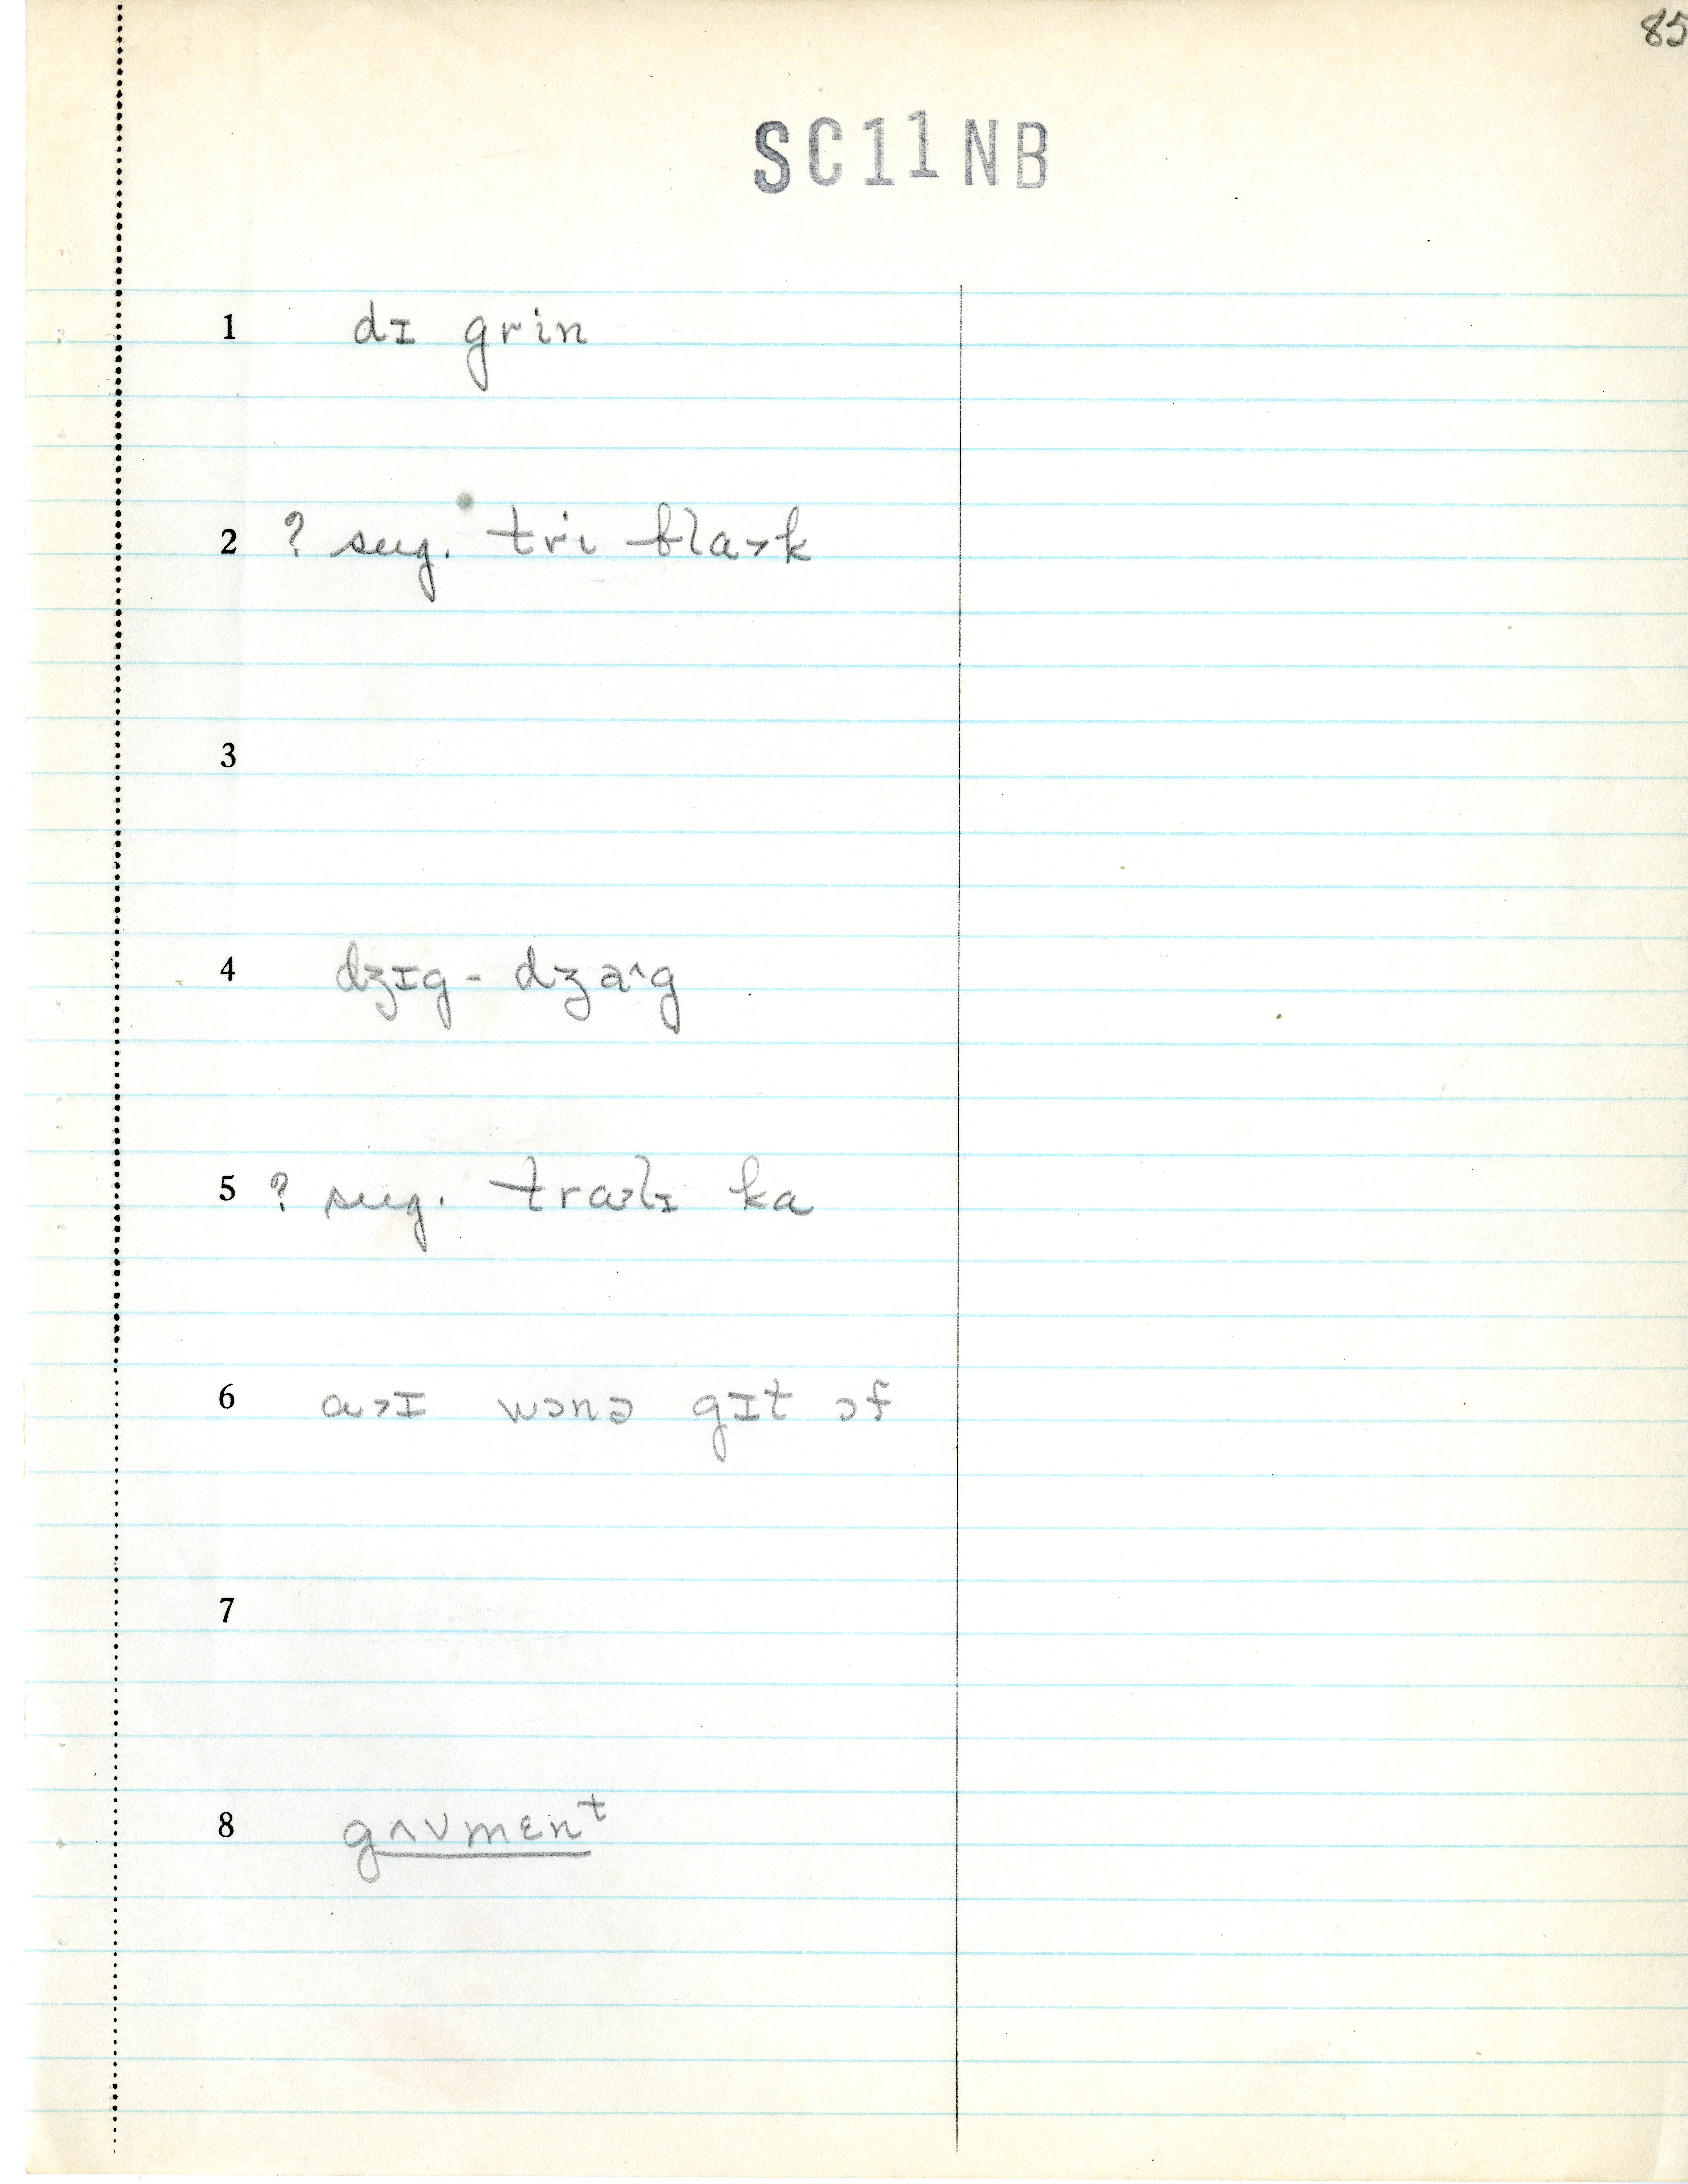 85
SC11NB
1 dɪ grin
2 ? sug. tri bla˃k
3
4 dʒɪg - dʒa^g
5 ? sug. tra˃lɪ ka
6 ɑ˃ɪ wɔnə gɪt ɔf
7
8 gʌvmɛnᵗ